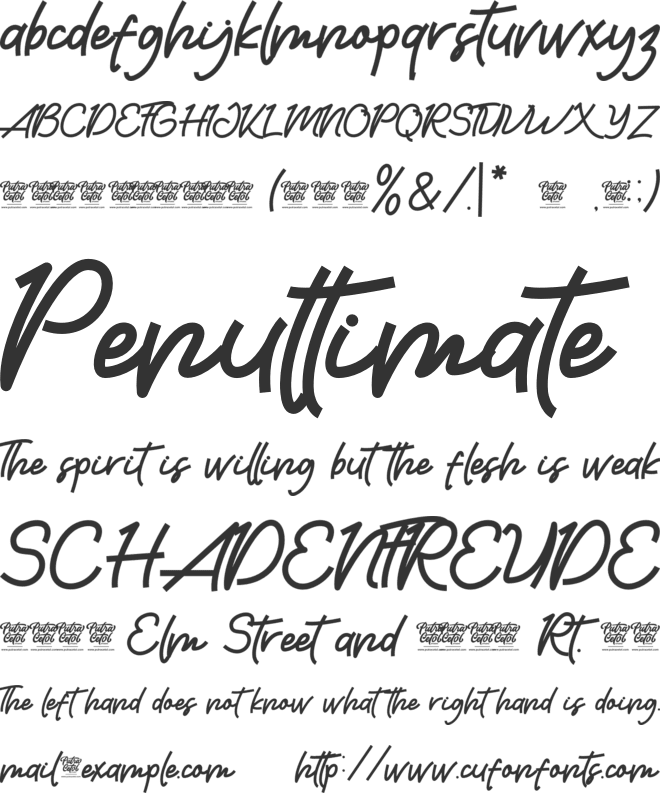 abcdefghijklmnopqrstuvwxyz
ABCDEFGHIJKLMNOPQRSTUVWXYZ
Putra Cetol Putra Cetol Putra Cetol Putra Cetol Putra Cetol Putra Cetol Putra Cetol Putra Cetol Putra Cetol ( Putra Cetol Putra Cetol Putra Cetol % & / . | * Putra Cetol , Putra Cetol : ; )
Penultimate
The spirit is willing but the flesh is weak
SCHADENFREUDE
Putra Cetol Putra Cetol Putra Cetol Putra Cetol Elm Street and Putra Cetol Putra Cetol Putra Cetol Putra Cetol Rt. Putra Cetol Putra Cetol
The left hand does not know what the right hand is doing.
mail Putra Cetol example.com http://www.cufonfonts.com